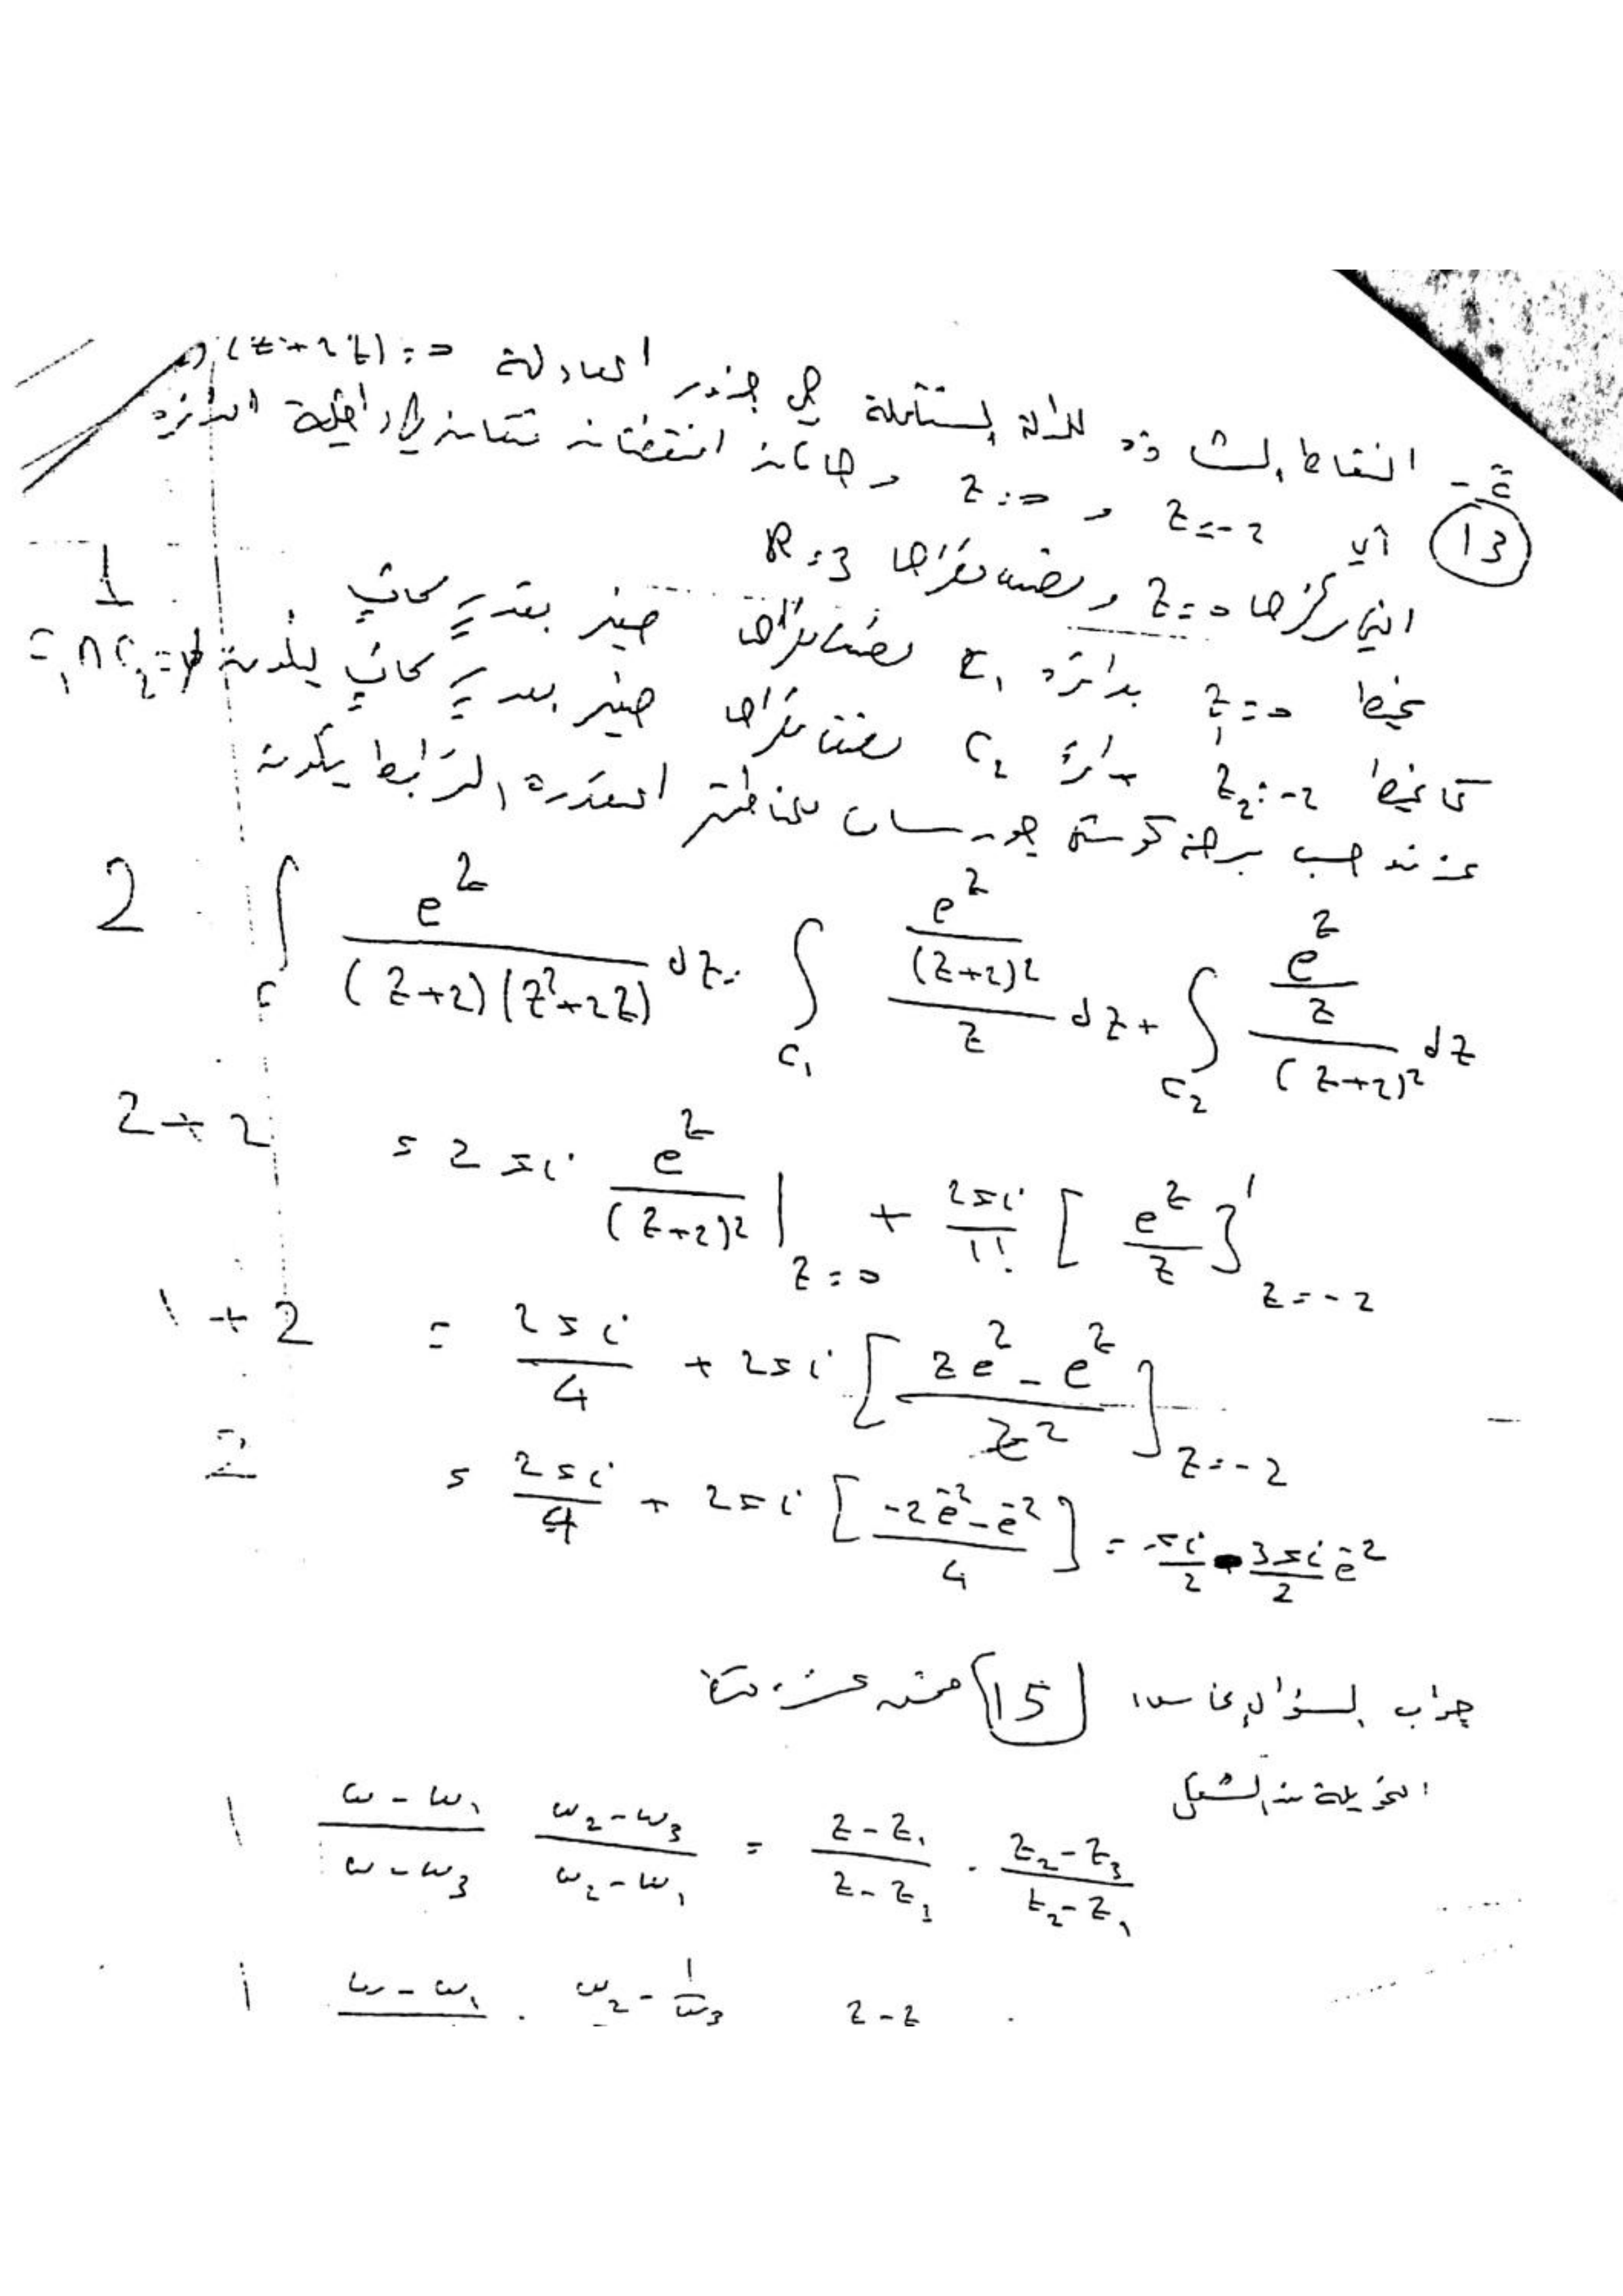 ج- النقاط الشاذة للدالة المستكاملة هي جذور المعادلة (z+2)(z²+2z)=0
13 أي z=-2 و z=0 وهاتان النقطتان تقعان في داخلية الدائرة
التي مركزها z=0 ونصف قطرها R=3
1 نحيط z₁=0 بدائرة C₁ نصف قطرها صغير بقدر كاف
كما نحيط z₂=-2 بدائرة C₂ نصف قطرها صغير بقدر كاف ليكون C₁∩C₂=φ
عندئذ حسب مبرهنة كوشي جورسات للمناطق المتعددة الترابط يكون
2 ∫_C e^z/((z+2)(z²+2z)) dz = ∫_C₁ (e^z/(z+2)²)/z dz + ∫_C₂ (e^z/z)/(z+2)² dz
2+2 = 2πi e^z/(z+2)² |_{z=0} + 2πi/1! [e^z/z]'_{z=-2}
1+2 = 2πi/4 + 2πi [(ze^z - e^z)/z²]_{z=-2}
2 = 2πi/4 + 2πi [(-2e^-2 - e^-2)/4] = πi/2 - 3πi/2 e^-2
جواب السؤال الخامس 15 خمس عشرة درجة
التحويلة من الشكل
1 (w-w₁)/(w-w₃) (w₂-w₃)/(w₂-w₁) = (z-z₁)/(z-z₃) · (z₂-z₃)/(z₂-z₁)
1 w-w₁ · w₂-1/w₃ z-z